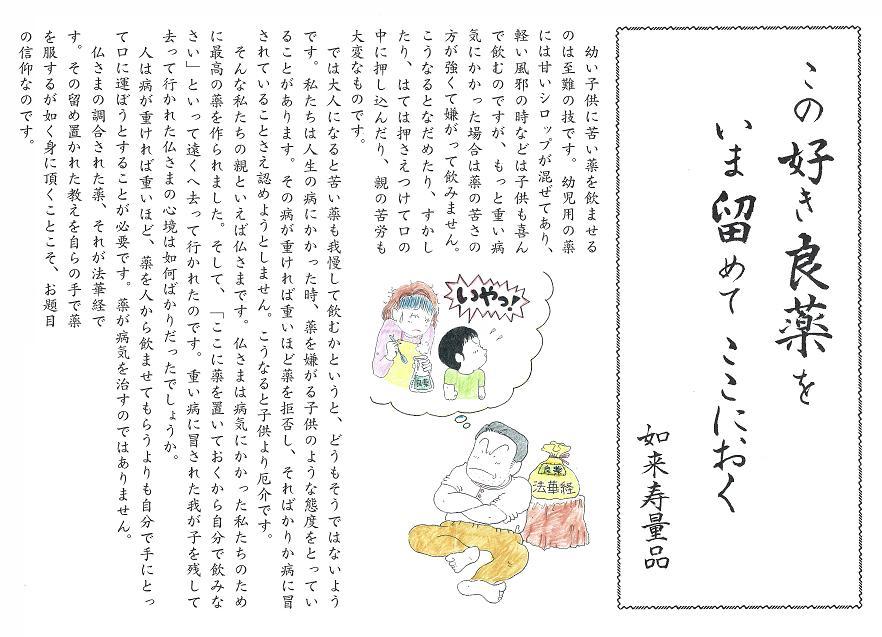 この好き良薬を
いま留めてここにおく
如来寿量品
幼い子供に苦い薬を飲ませる
のは至難の技です。幼児用の薬
には甘いシロップが混ぜてあり、
軽い風邪の時などは子供も喜ん
で飲むのですが、もっと重い病
気にかかった場合は薬の苦さの
方が強くて嫌がって飲みません。
こうなるとなだめたり、すかし
たり、はては押さえつけて口の
中に押し込んだり、親の苦労も
大変なものです。
では大人になると苦い薬も我慢して飲むかというと、どうもそうではないよう
です。私たちは人生の病にかかった時、薬を嫌がる子供のような態度をとってい
ることがあります。その病が重ければ重いほど薬を拒否し、そればかりか病に冒
されていることさえ認めようとしません。こうなると子供より厄介です。
そんな私たちの親といえば仏さまです。仏さまは病気にかかった私たちのため
に最高の薬を作られました。そして、「ここに薬を置いておくから自分で飲みな
さい」といって遠くへ去って行かれたのです。重い病に冒された我が子を残して
去って行かれた仏さまの心境は如何ばかりだったでしょうか。
人は病が重ければ重いほど、薬を人から飲ませてもらうよりも自分で手にとっ
て口に運ぼうとすることが必要です。薬が病気を治すのではありません。
仏さまの調合された薬、それが法華経で
す。その留め置かれた教えを自らの手で薬
を服するが如く身に頂くことこそ、お題目
の信仰なのです。
いやっ!
良薬
良薬
法華経